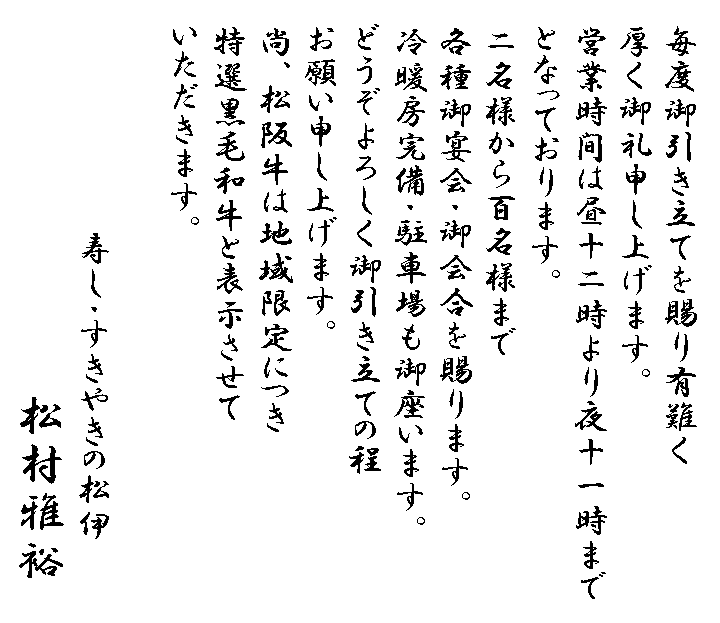 毎度御引き立てを賜り有難く
厚く御礼申し上げます。
営業時間は昼十二時より夜十一時まで
となっております。
二名様から百名様まで
各種御宴会・御会合を賜ります。
冷暖房完備・駐車場も御座います。
どうぞよろしく御引き立ての程
お願い申し上げます。
尚、松阪牛は地域限定につき
特選黒毛和牛と表示させて
いただきます。
寿し・すきやきの松伊
松村雅裕